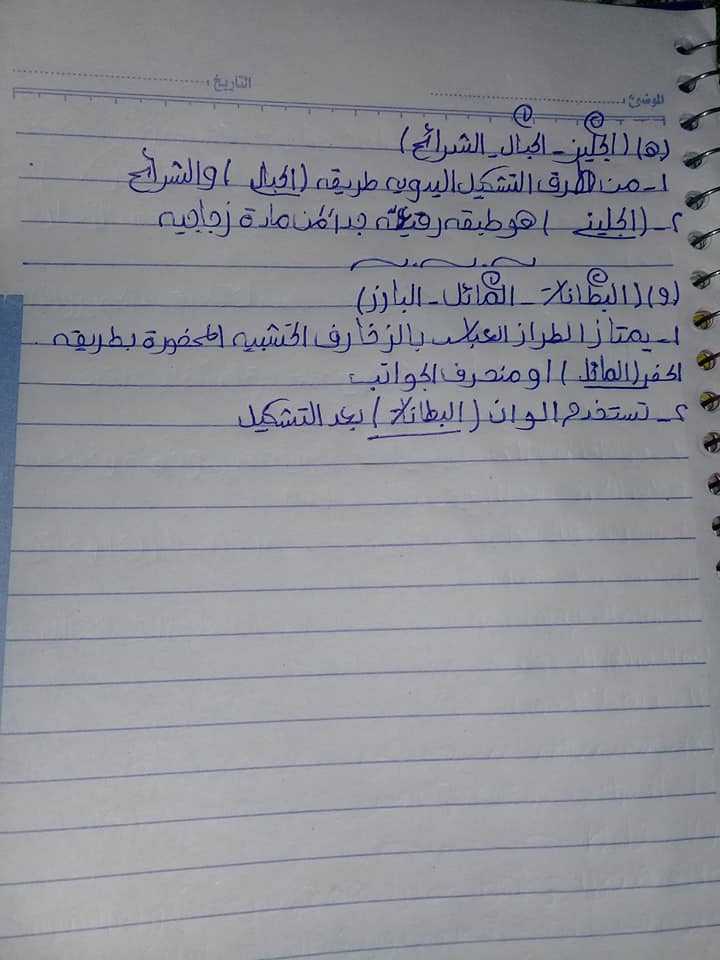 الموضوع: التاريخ:
١ ٢
(ه) (الجليز - الحبال - الشرائح)
١- من طرق التشكيل اليدويه طريقه (الحبال) والشرائح
٢- (الجليز) هو طبقه رقيقه جدا من مادة زجاجيه
١ ٢
(و) (البطانات - المائل - البارز)
١- يمتاز الطراز العباسى بالزخارف الخشبيه المحفورة بطريقه
الحفر (المائل) او منحرف الجوانب
٢- تستخدم الوان (البطانات) بعد التشكيل